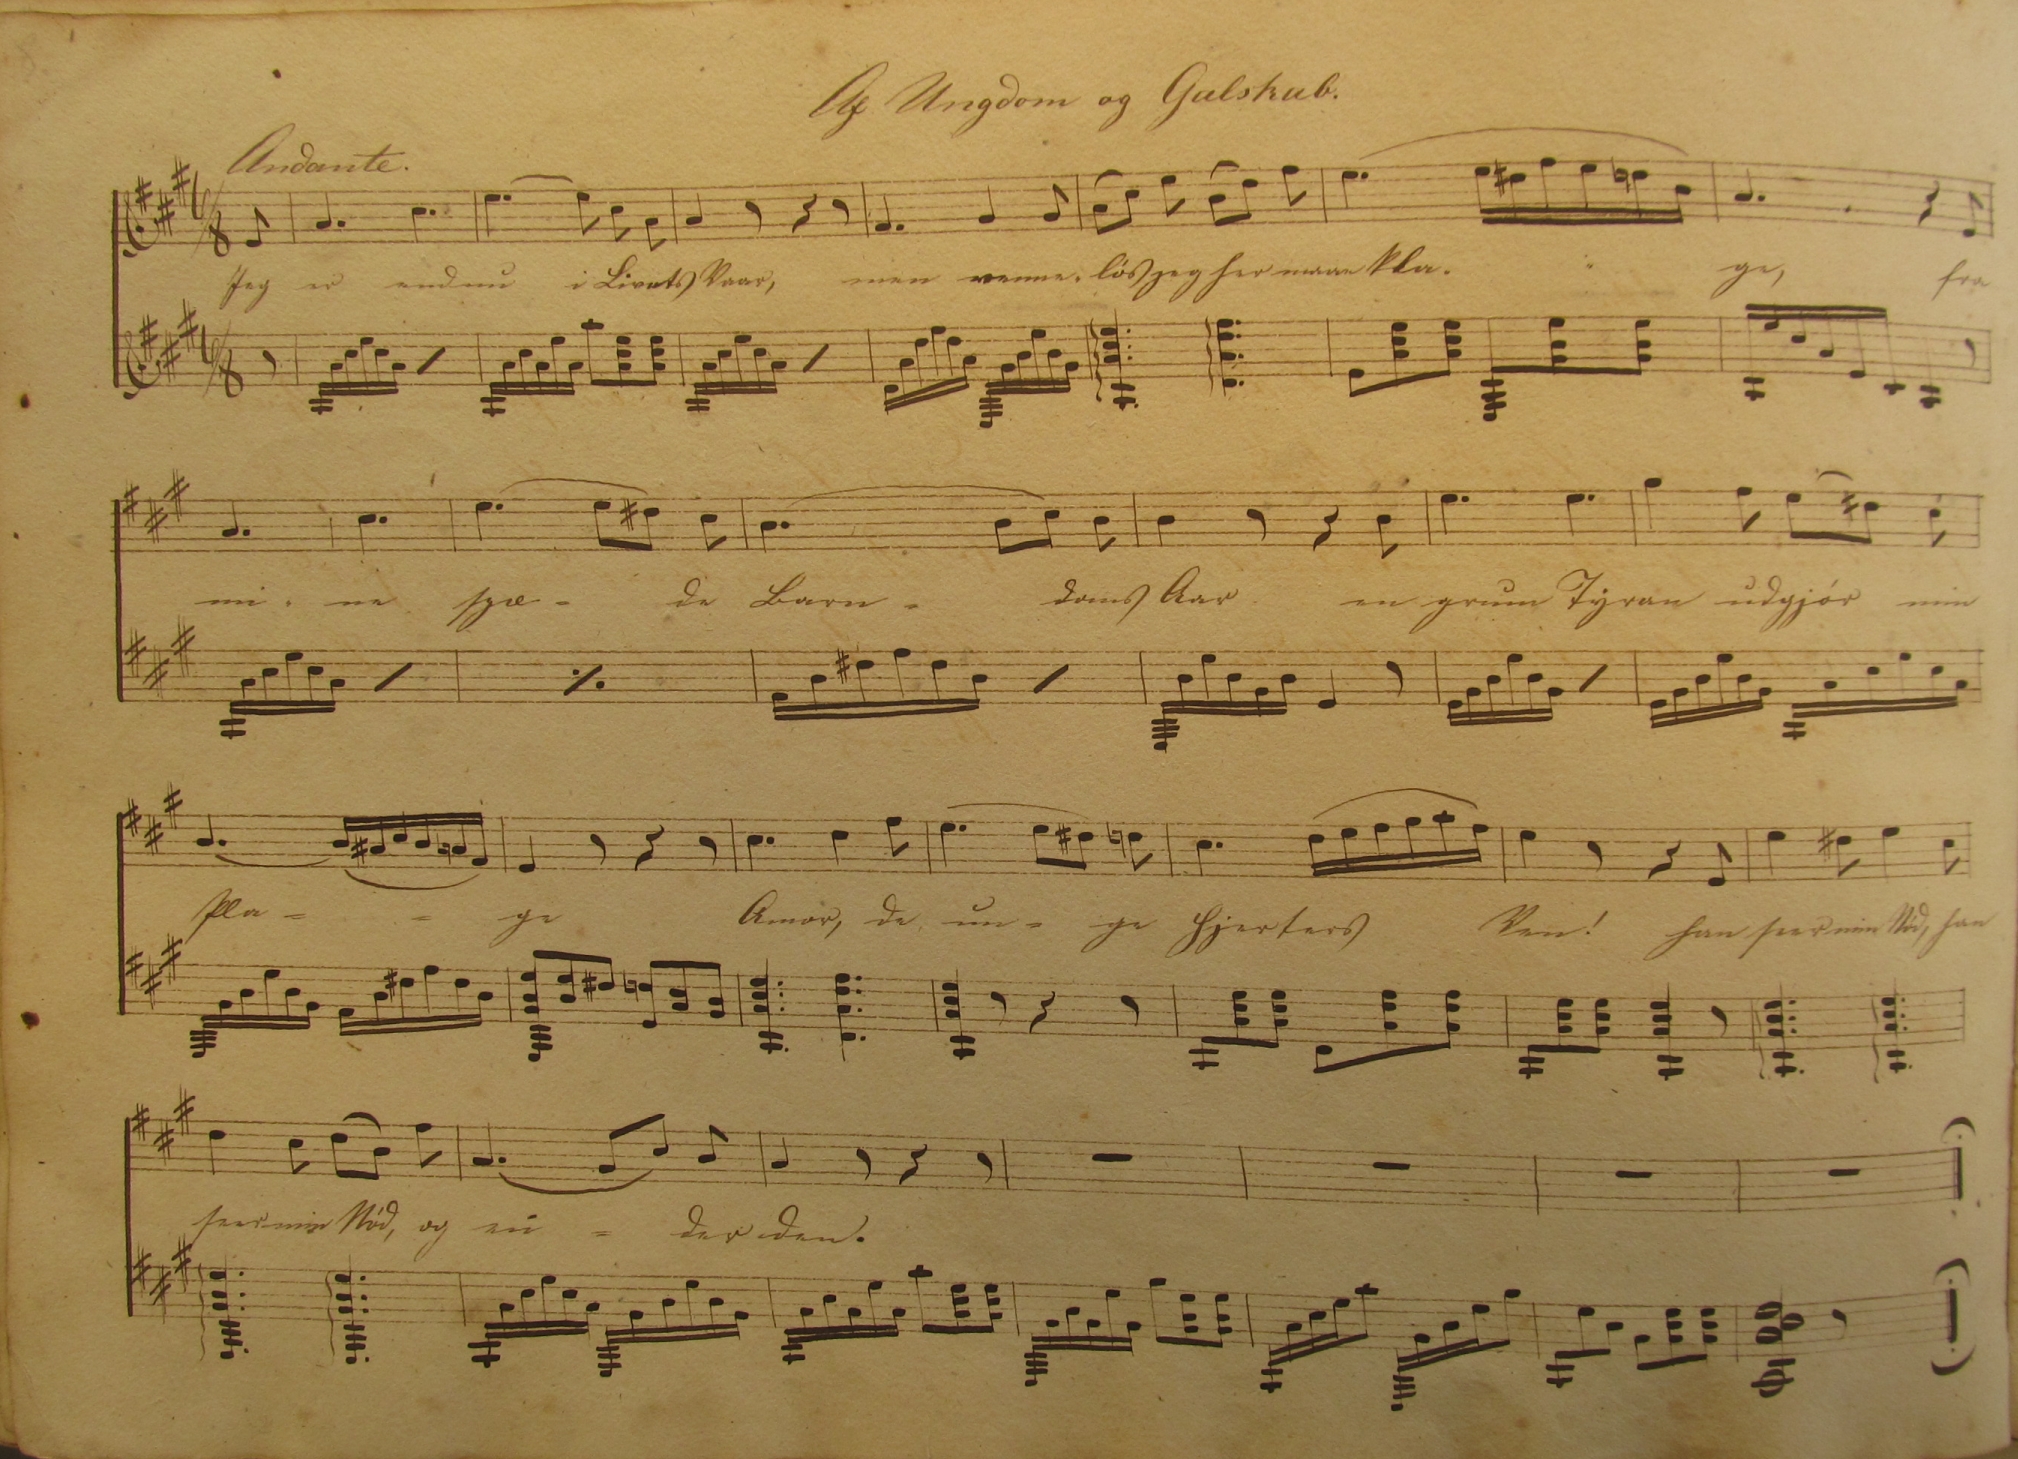 Af Ungdom og Galskab.
Andante.
6/8
Jeg er endnu i Livets Vaar, men venne-løs jeg her maae kla- ge, fra
6/8
mi- ne spæ- de Barn- doms Aar en grum Tyran udgjør min
Pla- - ge Amor, de un- ge Hjerters Ven! han seer min Nød, han
seer min Nød, og en- der den.